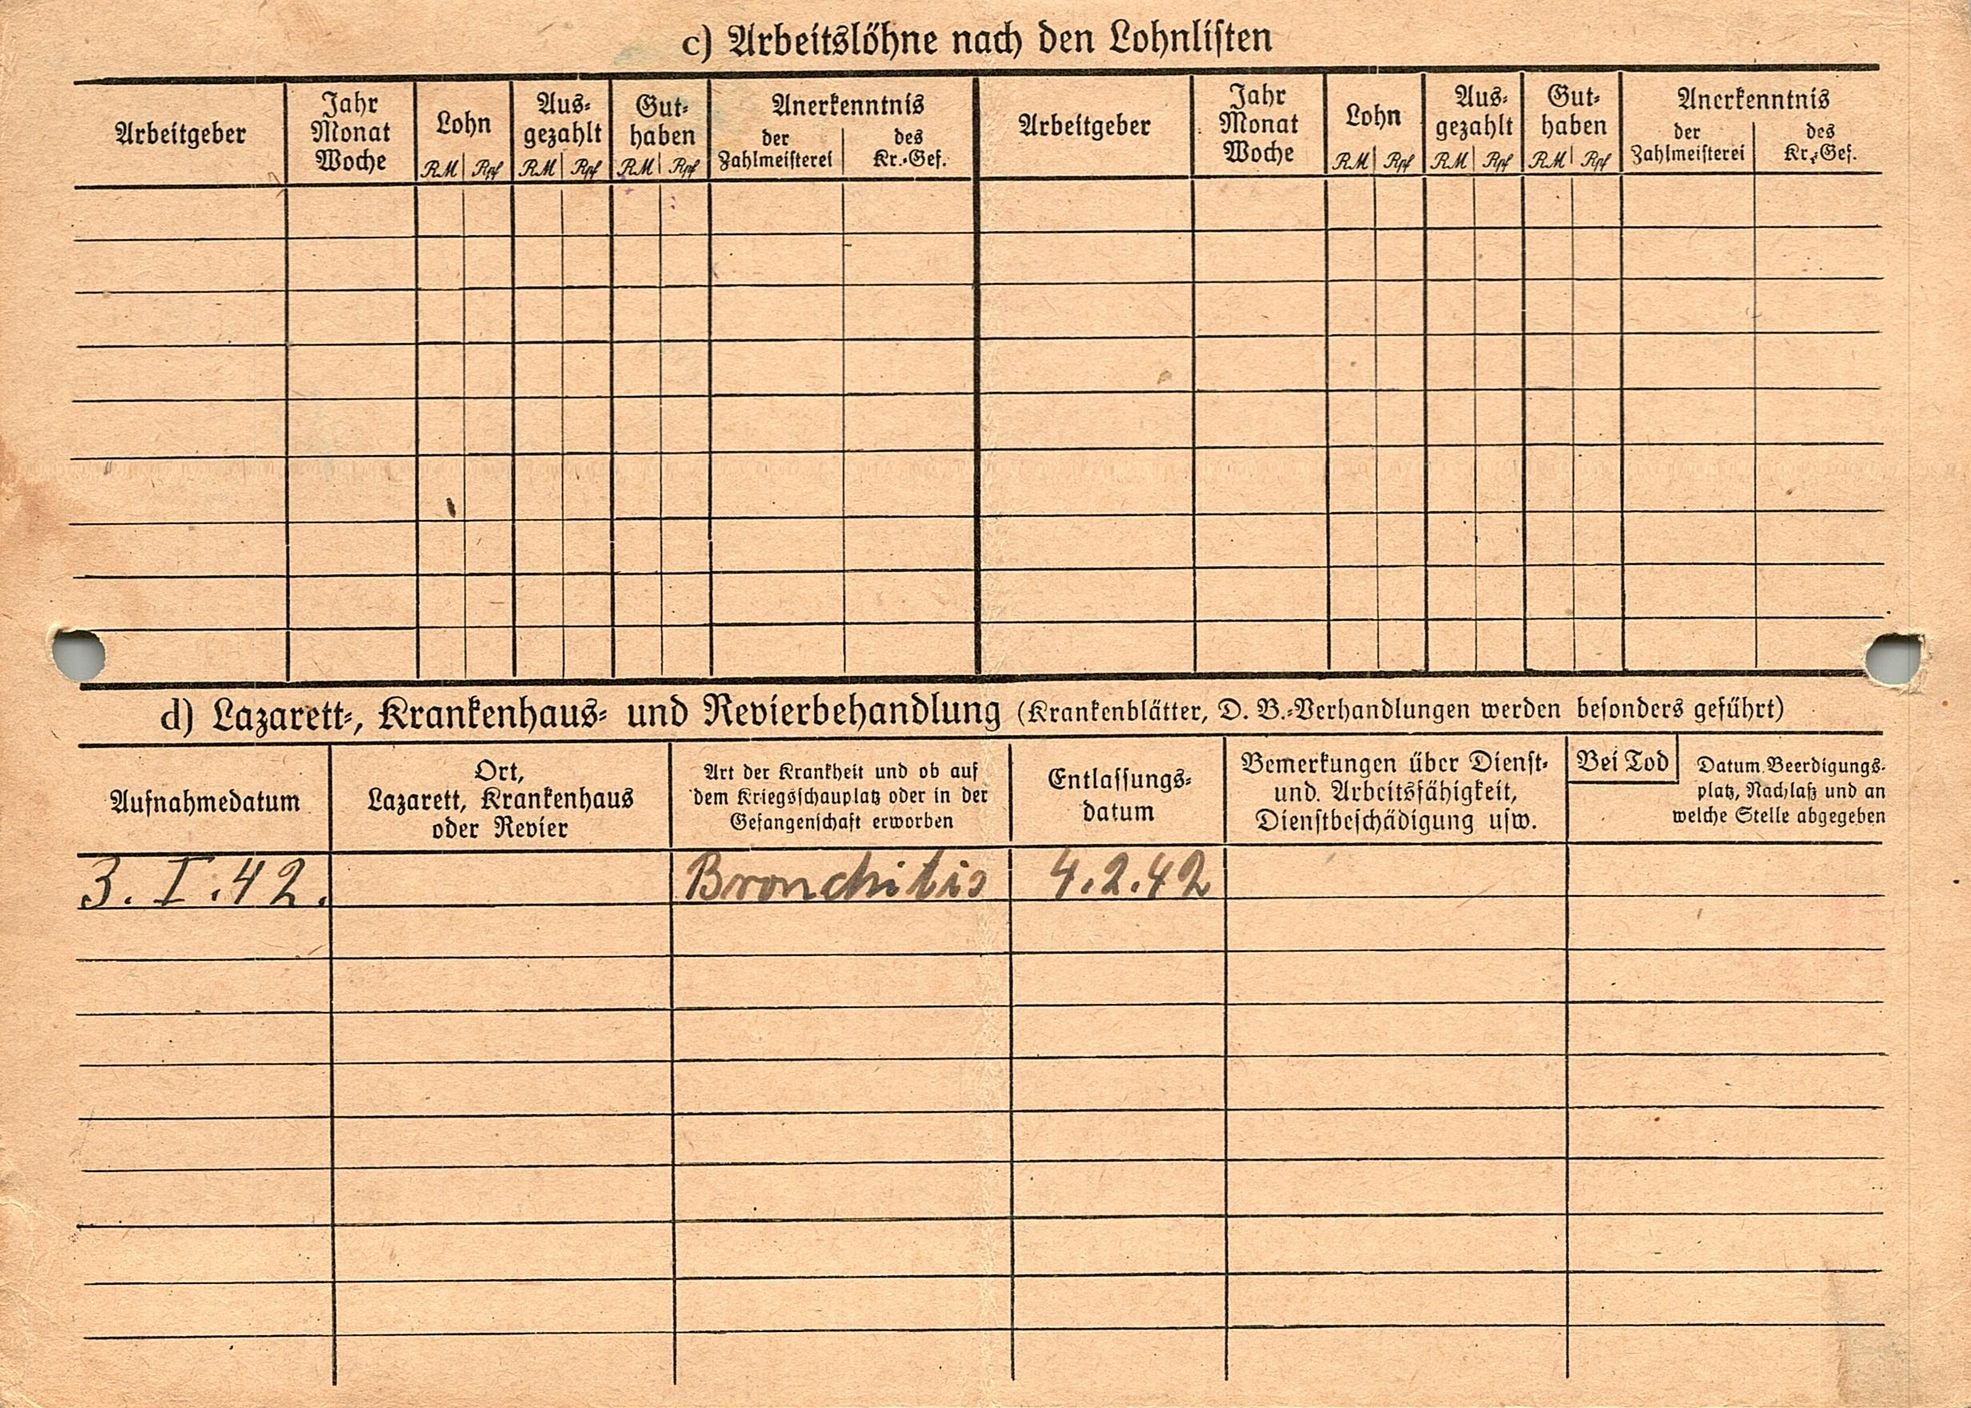 c) Arbeitslöhne nach den Lohnlisten
Arbeitgeber
Jahr
Monat
Woche
Lohn
RM Rpf
Aus-
gezahlt
RM Rpf
Gut-
haben
RM Rpf
Anerkenntnis
der
Zahlmeisterei
des
Kr.-Gef.
Arbeitgeber
Jahr
Monat
Woche
Lohn
RM Rpf
Aus-
gezahlt
RM Rpf
Gut-
haben
RM Rpf
Anerkenntnis
der
Zahlmeisterei
des
Kr.-Gef.
d) Lazarett-, Krankenhaus- und Revierbehandlung (Krankenblätter, D. B.-Verhandlungen werden besonders geführt)
Aufnahmedatum
Ort,
Lazarett, Krankenhaus
oder Revier
Art der Krankheit und ob auf
dem Kriegsschauplatz oder in der
Gefangenschaft erworben
Entlassungs-
datum
Bemerkungen über Dienst-
und Arbeitsfähigkeit,
Dienstbeschädigung usw.
Bei Tod
Datum, Beerdigungs-
platz, Nachlaß und an
welche Stelle abgegeben
3. I. 42. Bronchitis 4.2.42